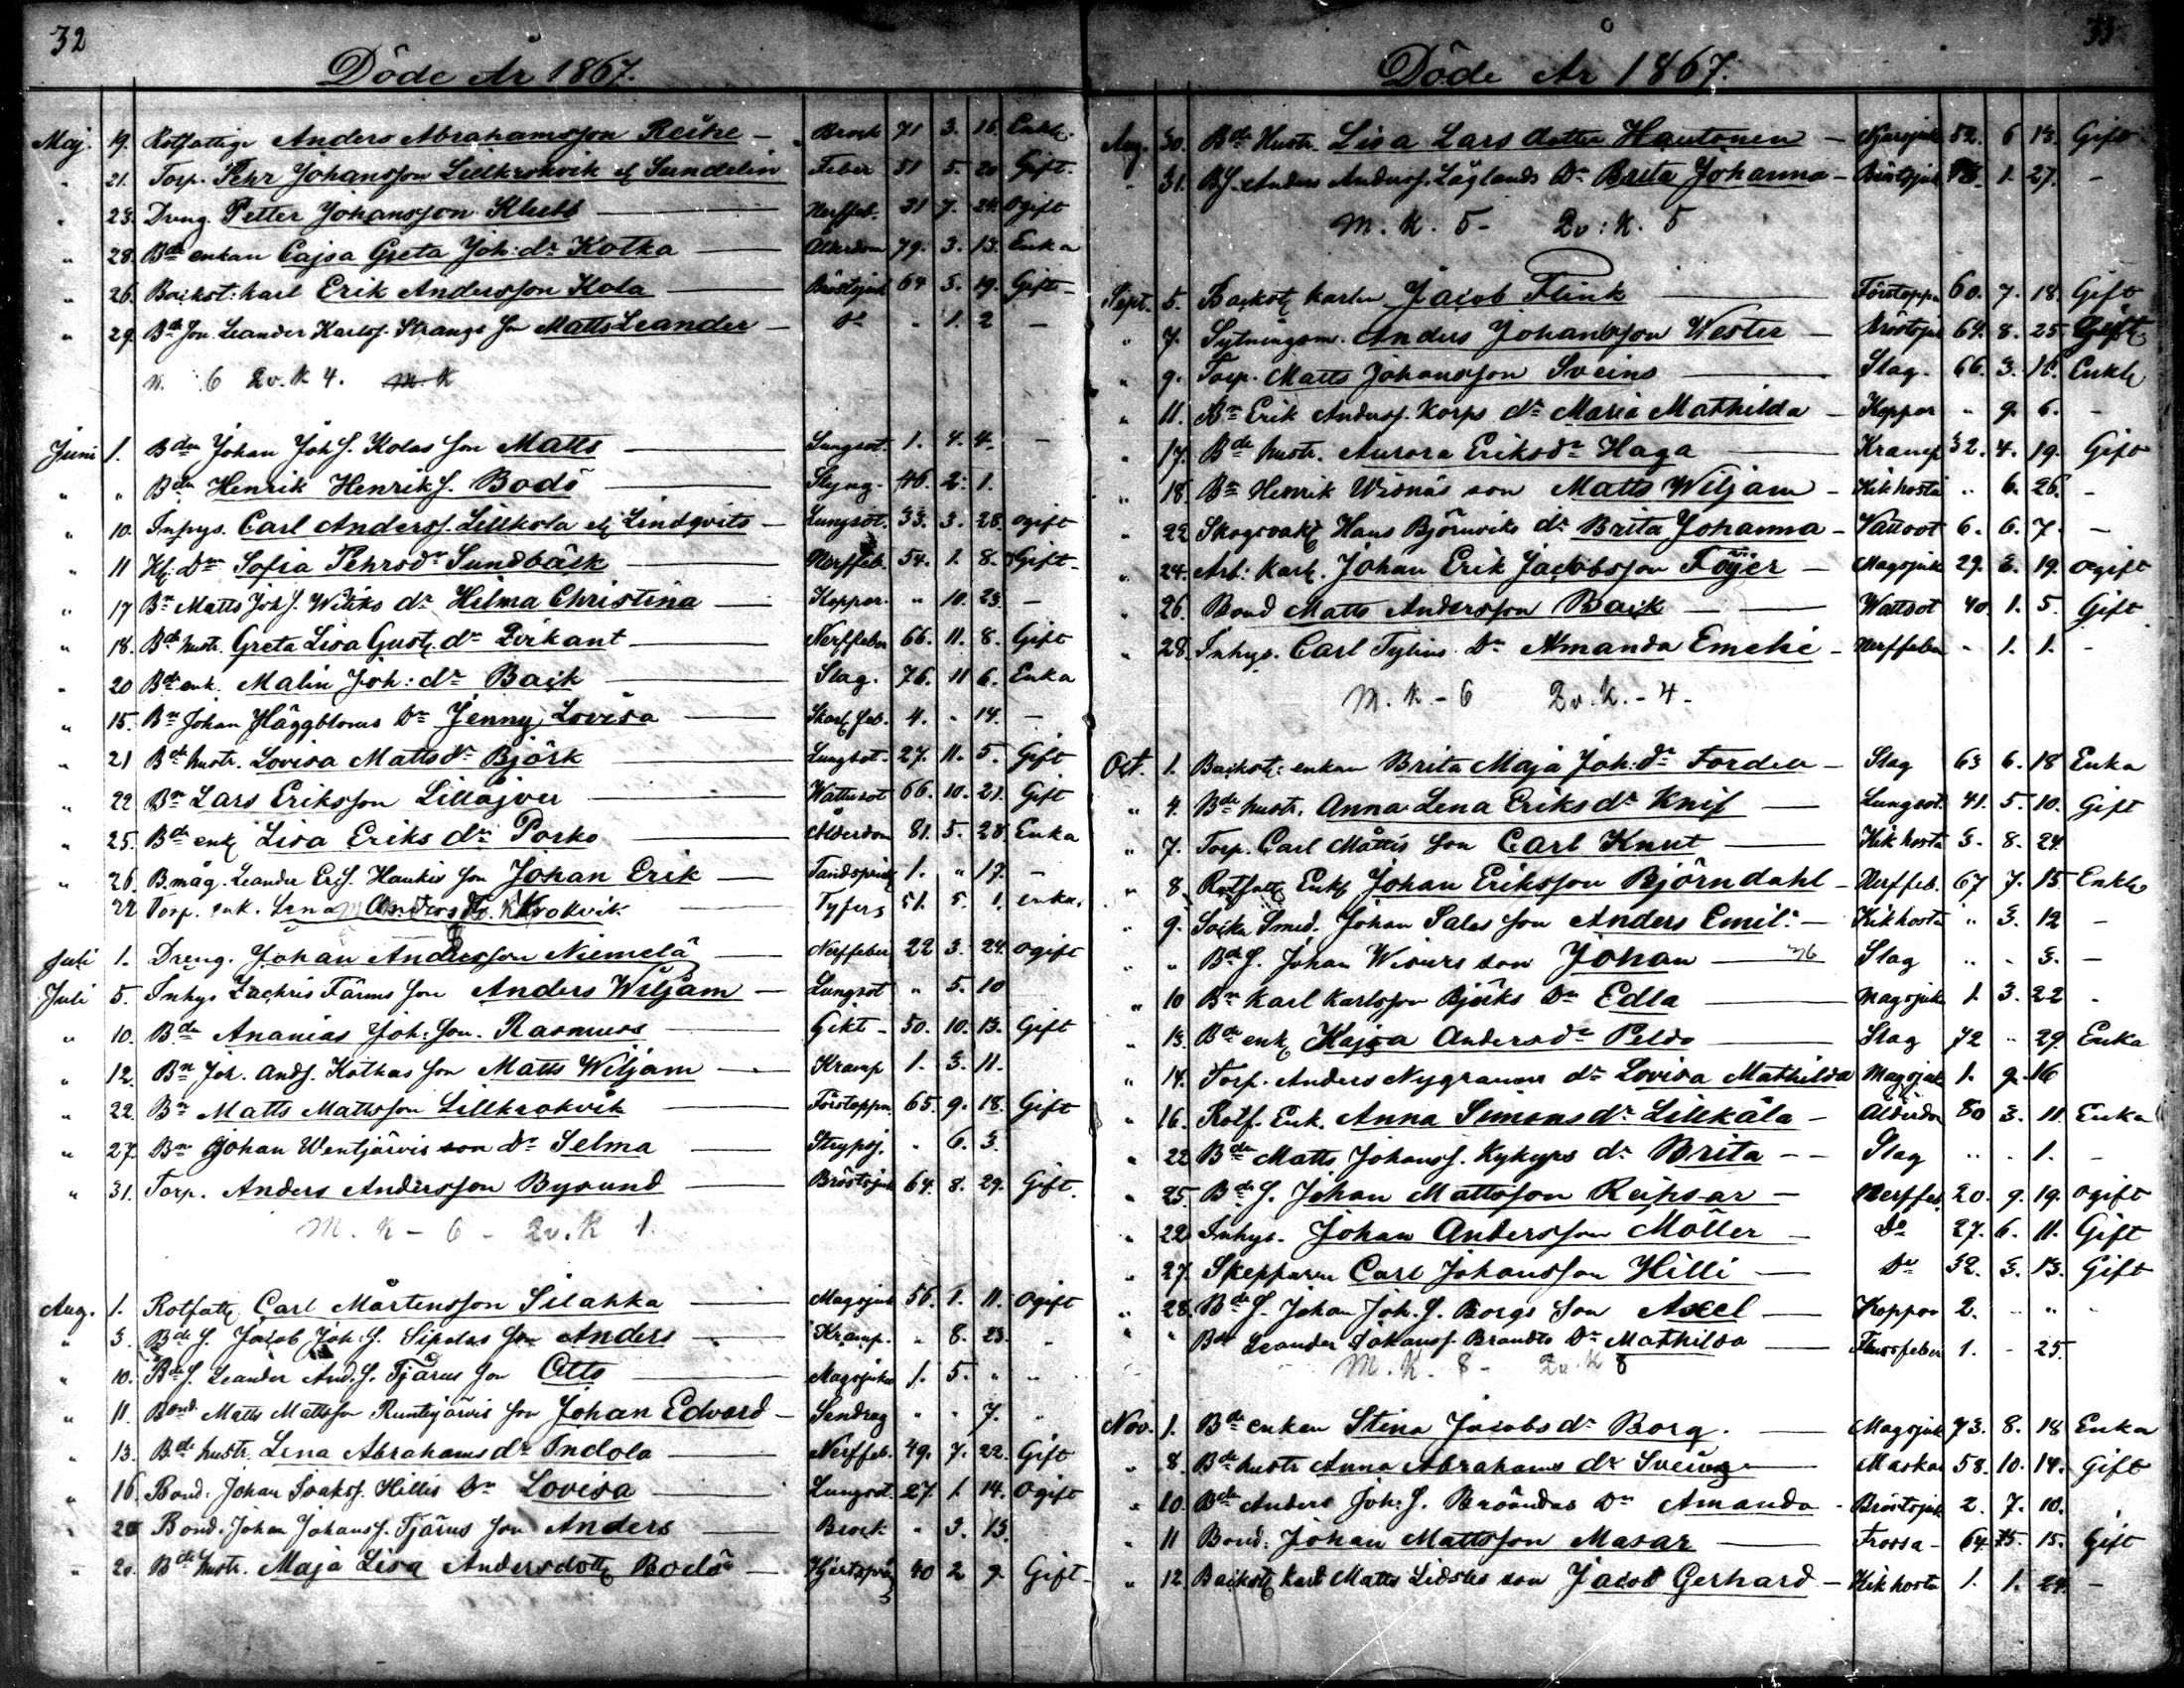 32
Döde År 1867.
Maj. 19. Rotfattige Anders Abrahamsson Reike - Brock 71 3. 16. Enkl.
" 21. Torp. Pehr Johansson Lillkrokvik el Sundelin Feber 51 5. 20 Gift.
" 23. Dreng Petter Johansson Klubb Nerffeb. 31 7. 24. Ogift
" 28. Bde enkan Cajsa Greta Joh: dr Kotka Ålderdom 79. 3. 13. Enka
" 26. Backst: karl Erik Andersson Kola Bröstsjuk 64 3. 19. Gift
" 29. Bde Son Leander Karlss. Strangs son Matts Leander - Do " 1. 2 -
M. 6 Qv. K 4. M. K
Juni 1. Bdn Johan Joh S. Kolas son Matts Lungsot. 1. 4. 4. -
" " Bdn Henrik Henrik S. Bodö Styng. 46. 2. 1.
" 10. Inhys. Carl Anderss. Lillkola el Lindqvits - Lungsot. 33. 3. 28. ogift
" 11 Dr Sofia Pehrsdr Sundbäck Nerffeb. 54. 1. 8. Gift -
" 17 Bn Matts Joh S. Wiiks dr Hilma Christina Koppor. " 10. 23. -
" 18. Bde hustr. Greta Lisa Gust. dr Pirkant Nerffeber 66. 11. 8. Gift
" 20 Bde enk. Malin Joh: dr Back Slag. 76. 11 6. Enka
" 15. Bn Johan Häggbloms Dr Jenny Lovisa Skarl. feb. 4. " 14. -
" 21 Bde hustr. Lovisa Mattsdr Björk Lungsot. 27. 11. 5. Gift
" 22. Bn Lars Eriksson Lillåjver Wattusot 66. 10. 21. Gift
" 25. Bde enk Lisa Eriks dr Porko Ålderdom 81. 5. 28. Enka
" 26. B. måg. Leander Er. S. Haukis son Johan Erik Tandsprick 1. " 17. -
22 Torp. enk. Lena Anders dr Krokvik Tyfers 51. 5 1. enka.
Juli 1. Dreng. Johan Andersson Niemelä Nerffeber 22 3. 24. ogift
Juli 5. Inhys Zachris Färms son Anders Wiljam - Lungsot " 5. 10
" 10. Bdn Ananias Joh: Son. Rasmuss Gikt - 50. 10. 13. Gift
" 12. Bn Joh. Ands. Kotkas son Matts Wiljam Kramp 1. 3. 11.
" 22. Bn Matts Mattsson Lillkrokvik Förstoppn. 65. 9. 18. Gift
" 27. Bn Johan Wentjärvis son dr Selma Strypsj. " 6. 3.
" 31. Torp. Anders Andersson Bysund Bröstsjuk 64. 8. 29. Gift.
M. K - 6 - Qv. K 1.
Aug. 1. Rotfatt. Carl Mårtensson Silahka Magsjuk 56. 1. 11. Ogift
" 3. Bde S. Jacob Joh. S. Sipolas son Anders Kramp. " 8. 23. -
" 10. Bde S. Leander And. S. Tjärus son Otto Magsjuka 1. 5. " "
" 11. Bond. Matts Mattsson Runtujärvis son Johan Edvard - Sendrag " " 7. "
" 13. Bde hustr. Lena Abrahams dr Indola Nerffeb. 49. 7. 22. Gift
" 16. Bond. Johan Isakss. Hillis Dr Lovisa Lungsot. 27. 1. 14. Ogift
" 20 Bond. Johan Johanss. Tjärus son Anders Brock " 3. 13.
" 20. Bde hustr. Maja Lisa Andersdottr Bodö Hjertspån 40 2 9. Gift -
33.
Döde År 1867.
Aug. 30. Bde Hustr. Lisa Lars dotter Hautonen - 52. 6 13. Gift
" 31. BS. Anders Anderss. Läglands Dr Brita Johanna - Bröstsjuk 1. 27. -
M. K. 5 - Qv: K. 5
Sept. 5. Backst karlen Jacob Flink Förstoppn 60. 7. 18. Gift
" 7. Sytningsm. Anders Johansson Wester Bröstsjuk 64. 8. 25. Gift
" 9. Torp. Matts Johansson Sveins Slag. 66. 3. 16. Enkl
" 11. Bn Erik Anderss. Korps dr Maria Mathilda - Koppor " 9. 6. -
" 17. Bde hustr. Aurora Eriksdr Haga Kramp 32. 4. 19. Gift
" 18. Bn Henrik Wisnäs son Matts Wiljam - Kikhosta " 6. 26. -
" 22 Skogsvakt Hans Björnviks dr Brita Johanna - Vattsot 6. 6. 7. -
" 24. Arb: karl. Johan Erik Jacobsson Föyer - Magsjuk 29. 3. 19. Ogift
" 26. Bond Matts Andersson Back Wattsot 40. 1. 5. Gift
" 28. Inhys. Carl Tylius Dr Amanda Emelie - Nerffeber " 1. 1. -
M. K - 6 Qv. K. - 4 -
Oct. 1. Backst: enkan Brita Maja Joh: dr Fordell - Slag 63 6. 18 Enka
" 4. Bde hustr. Anna Lena Eriks dr Knif Lungsot. 41. 5. 10. Gift
" 7. Torp. Carl Måttis son Carl Knut Kikhosta 3. 8. 24.
" 8. Rotfatt. Enkl Johan Eriksson Björndahl - Nerffeb. 67 7. 15. Enkl
" 9. Socke Smed. Johan Sales son Anders Emil. - Kikhosta " 3. 12 -
" " Bde S. Johan Wisurs son Johan Slag " " 3. -
" 10 Bn Karl Karlsson Björks Dr Edla Magsjuk 1. 3. 22 -
" 13. Bde enk Kajsa Andersdr Peldo Slag 72 " 29 Enka
" 14. Torp. Anders Nygranns dr Lovisa Mathilda Magsjuk 1. 9. 16
" 16. Rotf. Enk. Anna Simonsdr Lillkåla - Ålderdom 80 3. 11. Enka
" 22 Bdn Matts Johanss. Kykyrs dr Brita - - Slag " - 1. -
" 25. Bde S. Johan Mattsson Reipsar - Nerffeb. 20. 9. 19. ogift
" 22 Inhys. Johan Andersson Möller - Do 27. 6. 11. Gift
" 27. Skepparen Carl Johansson Hilli Do 32. 3. 13. Gift
" 28. Bde S. Johan Joh. S. Borgs son Axel Koppor 2. " "
" " Bdn Leander Johanss. Brandts Dr Mathilda Flussfeber 1. - 25.
M. K. 8 - Qv. K 8
Nov. 1. Bde enkan Stina Jacobs dr Borg. Magsjuk 73. 8. 18 Enka
" 8. Bde hustr Anna Abrahams dr Sveins Maskar 58. 10. 14. Gift
" 10. Bdn Anders Joh. S. Bröändas Dr Amanda - Bröstsjuk 2. 7. 10. "
" 11 Bond. Johan Mattsson Masar Frossa - 64. 5. 15. Gift
" 12 Backst karl Matts Lidstes son Jacob Gerhard - Kikhosta 1. 1. 24. -